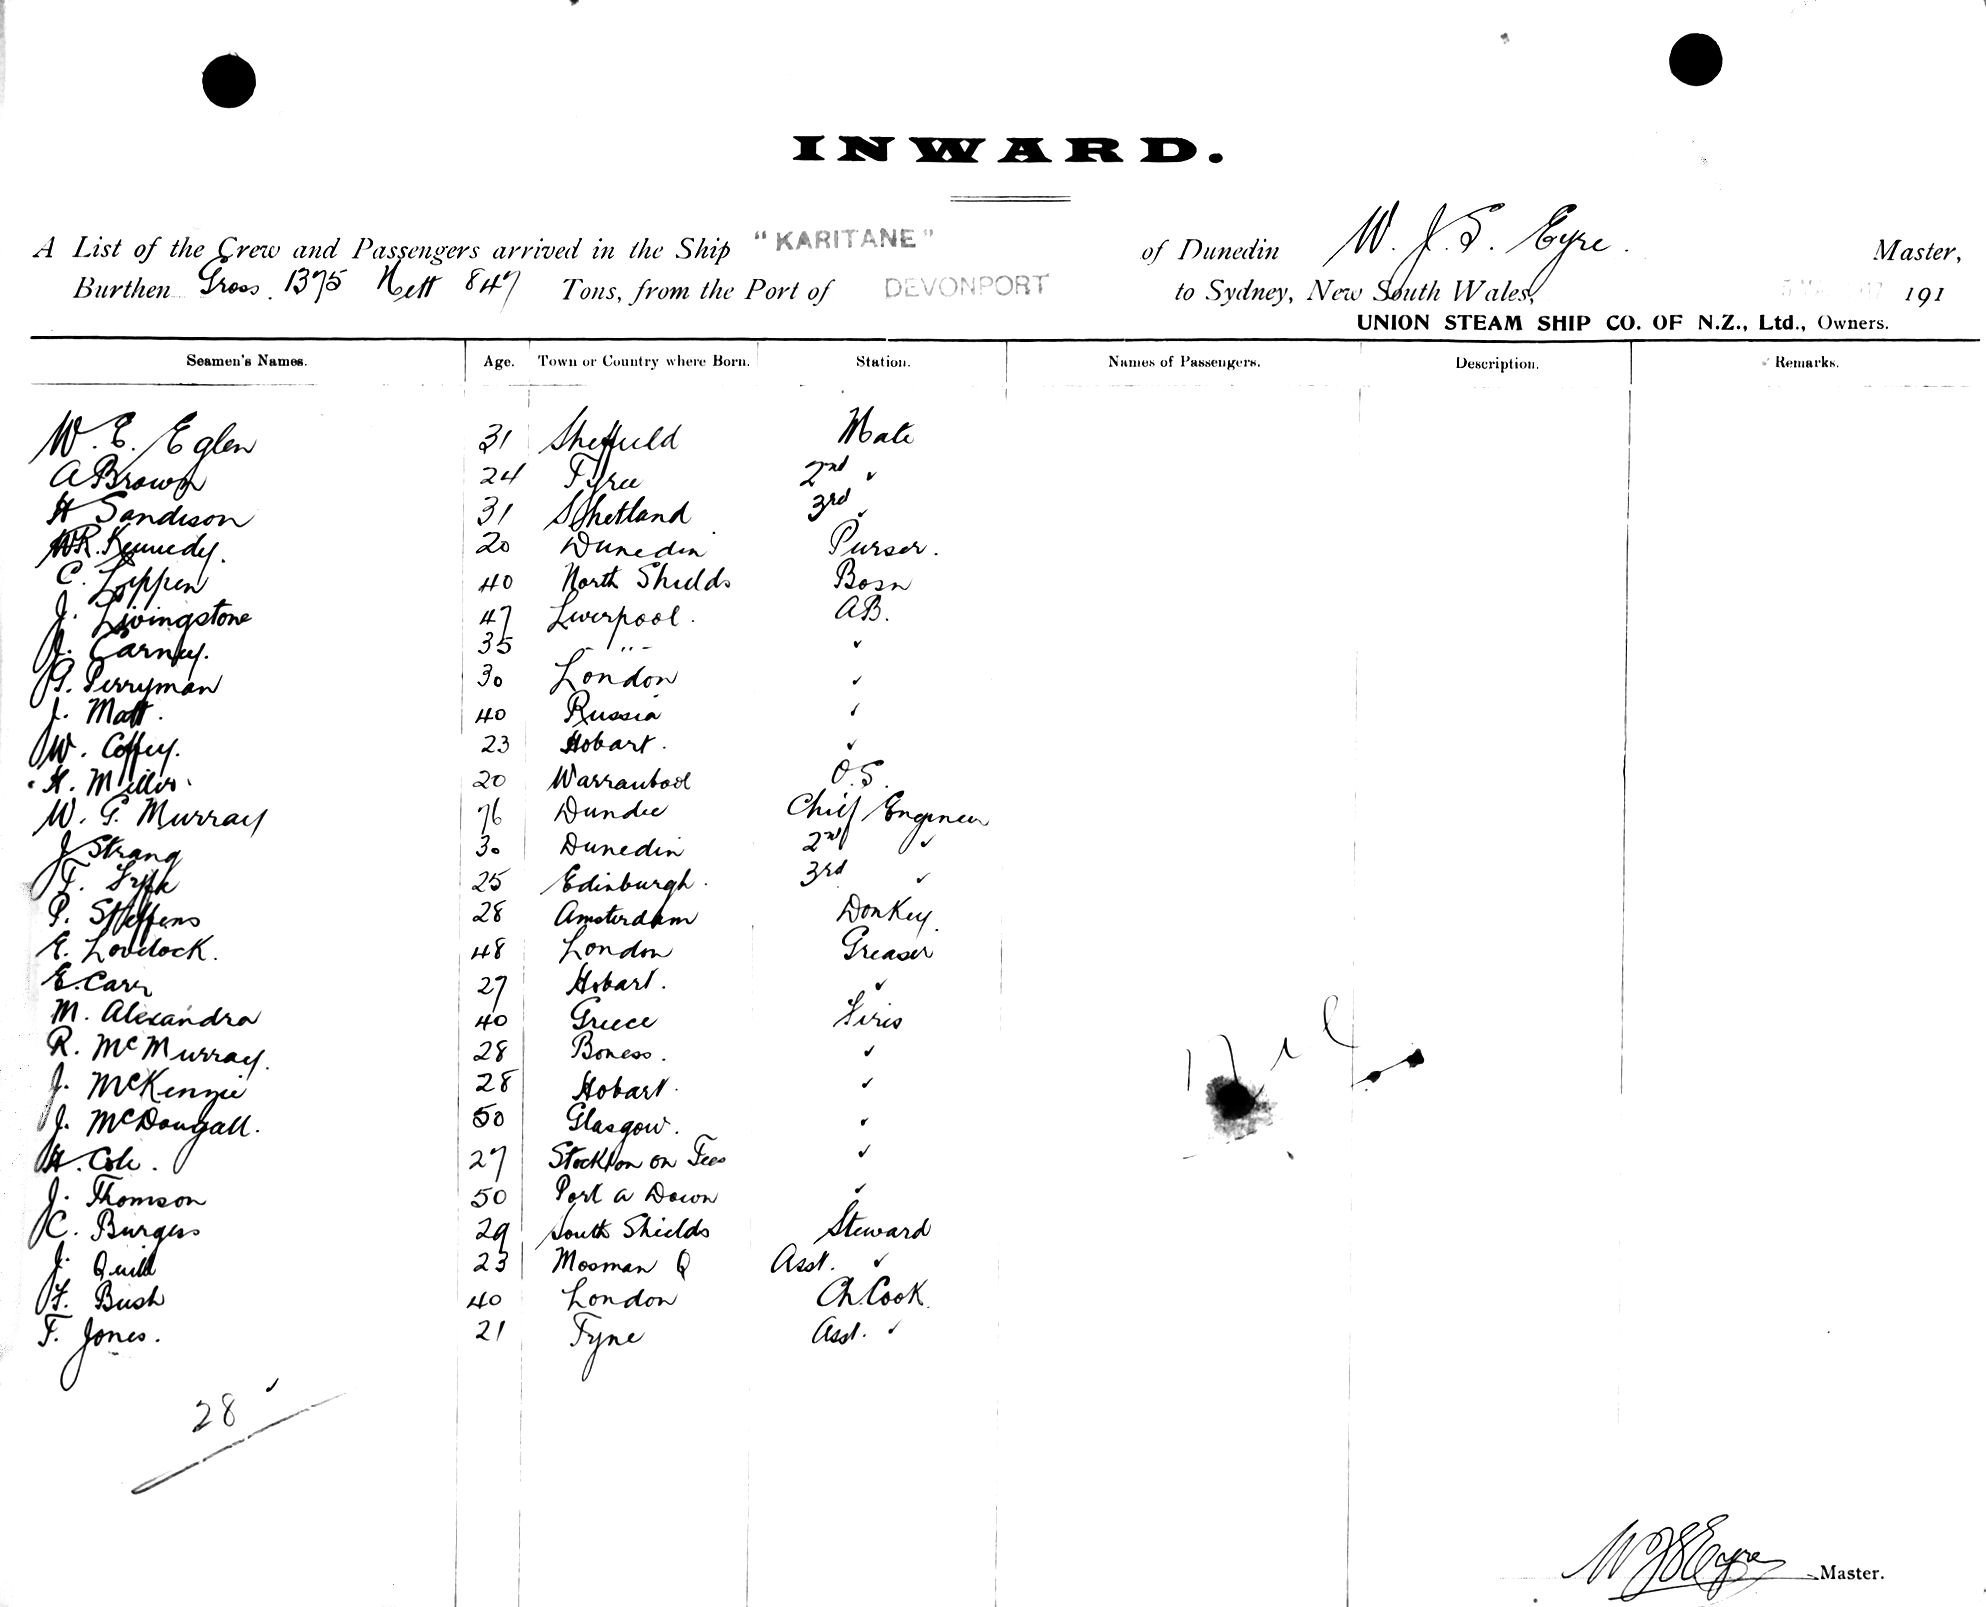 INWARD.
A List of the Crew and Passengers arrived in the Ship "KARITANE" of Dunedin W. J. S. Eyre. Master,
Burthen Gross. 1375 Nett 847 Tons, from the Port of DEVONPORT to Sydney, New South Wales, 191
UNION STEAM SHIP CO. OF N.Z., Ltd., Owners.
Seamen's Names. Age. Town or Country where Born. Station. Names of Passengers. Description. Remarks.
W. E. Eglen 31 Sheffield Mate
A Brown 24 Tyree 2nd ✓
H Sandison 31 Shetland 3rd ✓
W.R. Kennedy. 20 Dunedin Purser.
C. Lippen 40 North Shields Bosn
J. Livingstone 47 Liverpool. AB.
J. Carney. 35 - " - ✓
G. Perryman 30 London ✓
J. Matt. 40 Russia ✓
W. Coffey. 23 Hobart. ✓
H. Miller. 20 Warranbool O.S.
W. G. Murray 76 Dundee Chief Engineer
J Strang 30 Dunedin 2nd ✓
T. 25 Edinburgh. 3rd ✓
P. Steffens 28 Amsterdam Donkey.
E. Lovelock. 48 London Greaser
E. Carr 27 Hobart. ✓
M. Alexandra 40 Greece Fires
R. McMurray. 28 Boness. ✓
J. McKenzie 28 Hobart. ✓
J. McDougall. 50 Glasgow. ✓
H. Cole. 27 Stockton on Tees ✓
J. Thomson 50 Port a Down ✓
C. Burgess 29 South Shields Steward
J. Quill 23 Mosman Q Asst. ✓
F. Bush 40 London Ch. Cook.
T. Jones. 21 Tyne Asst. ✓
28 ✓
W J S Eyre Master.